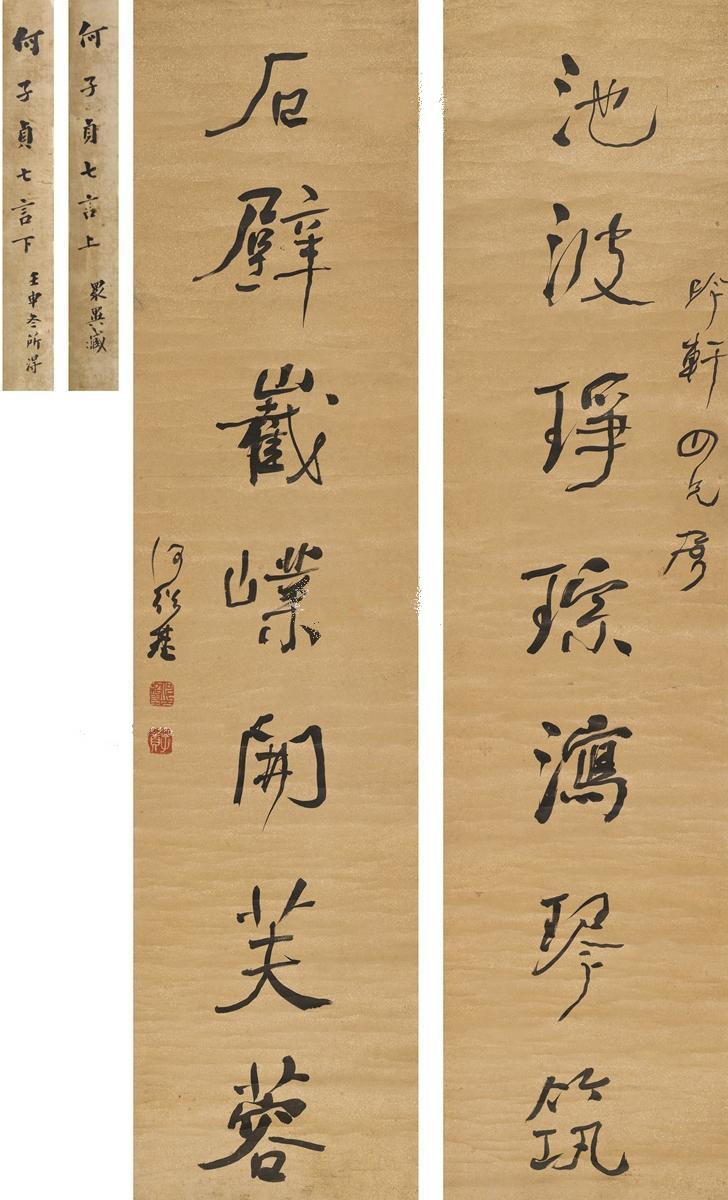 吟軒四兄屬
池波琤琮瀉琴筑
石壁巀嶪開芙蓉
何紹基
何子貞七言上 眾異藏
何子貞七言下 壬申冬所得